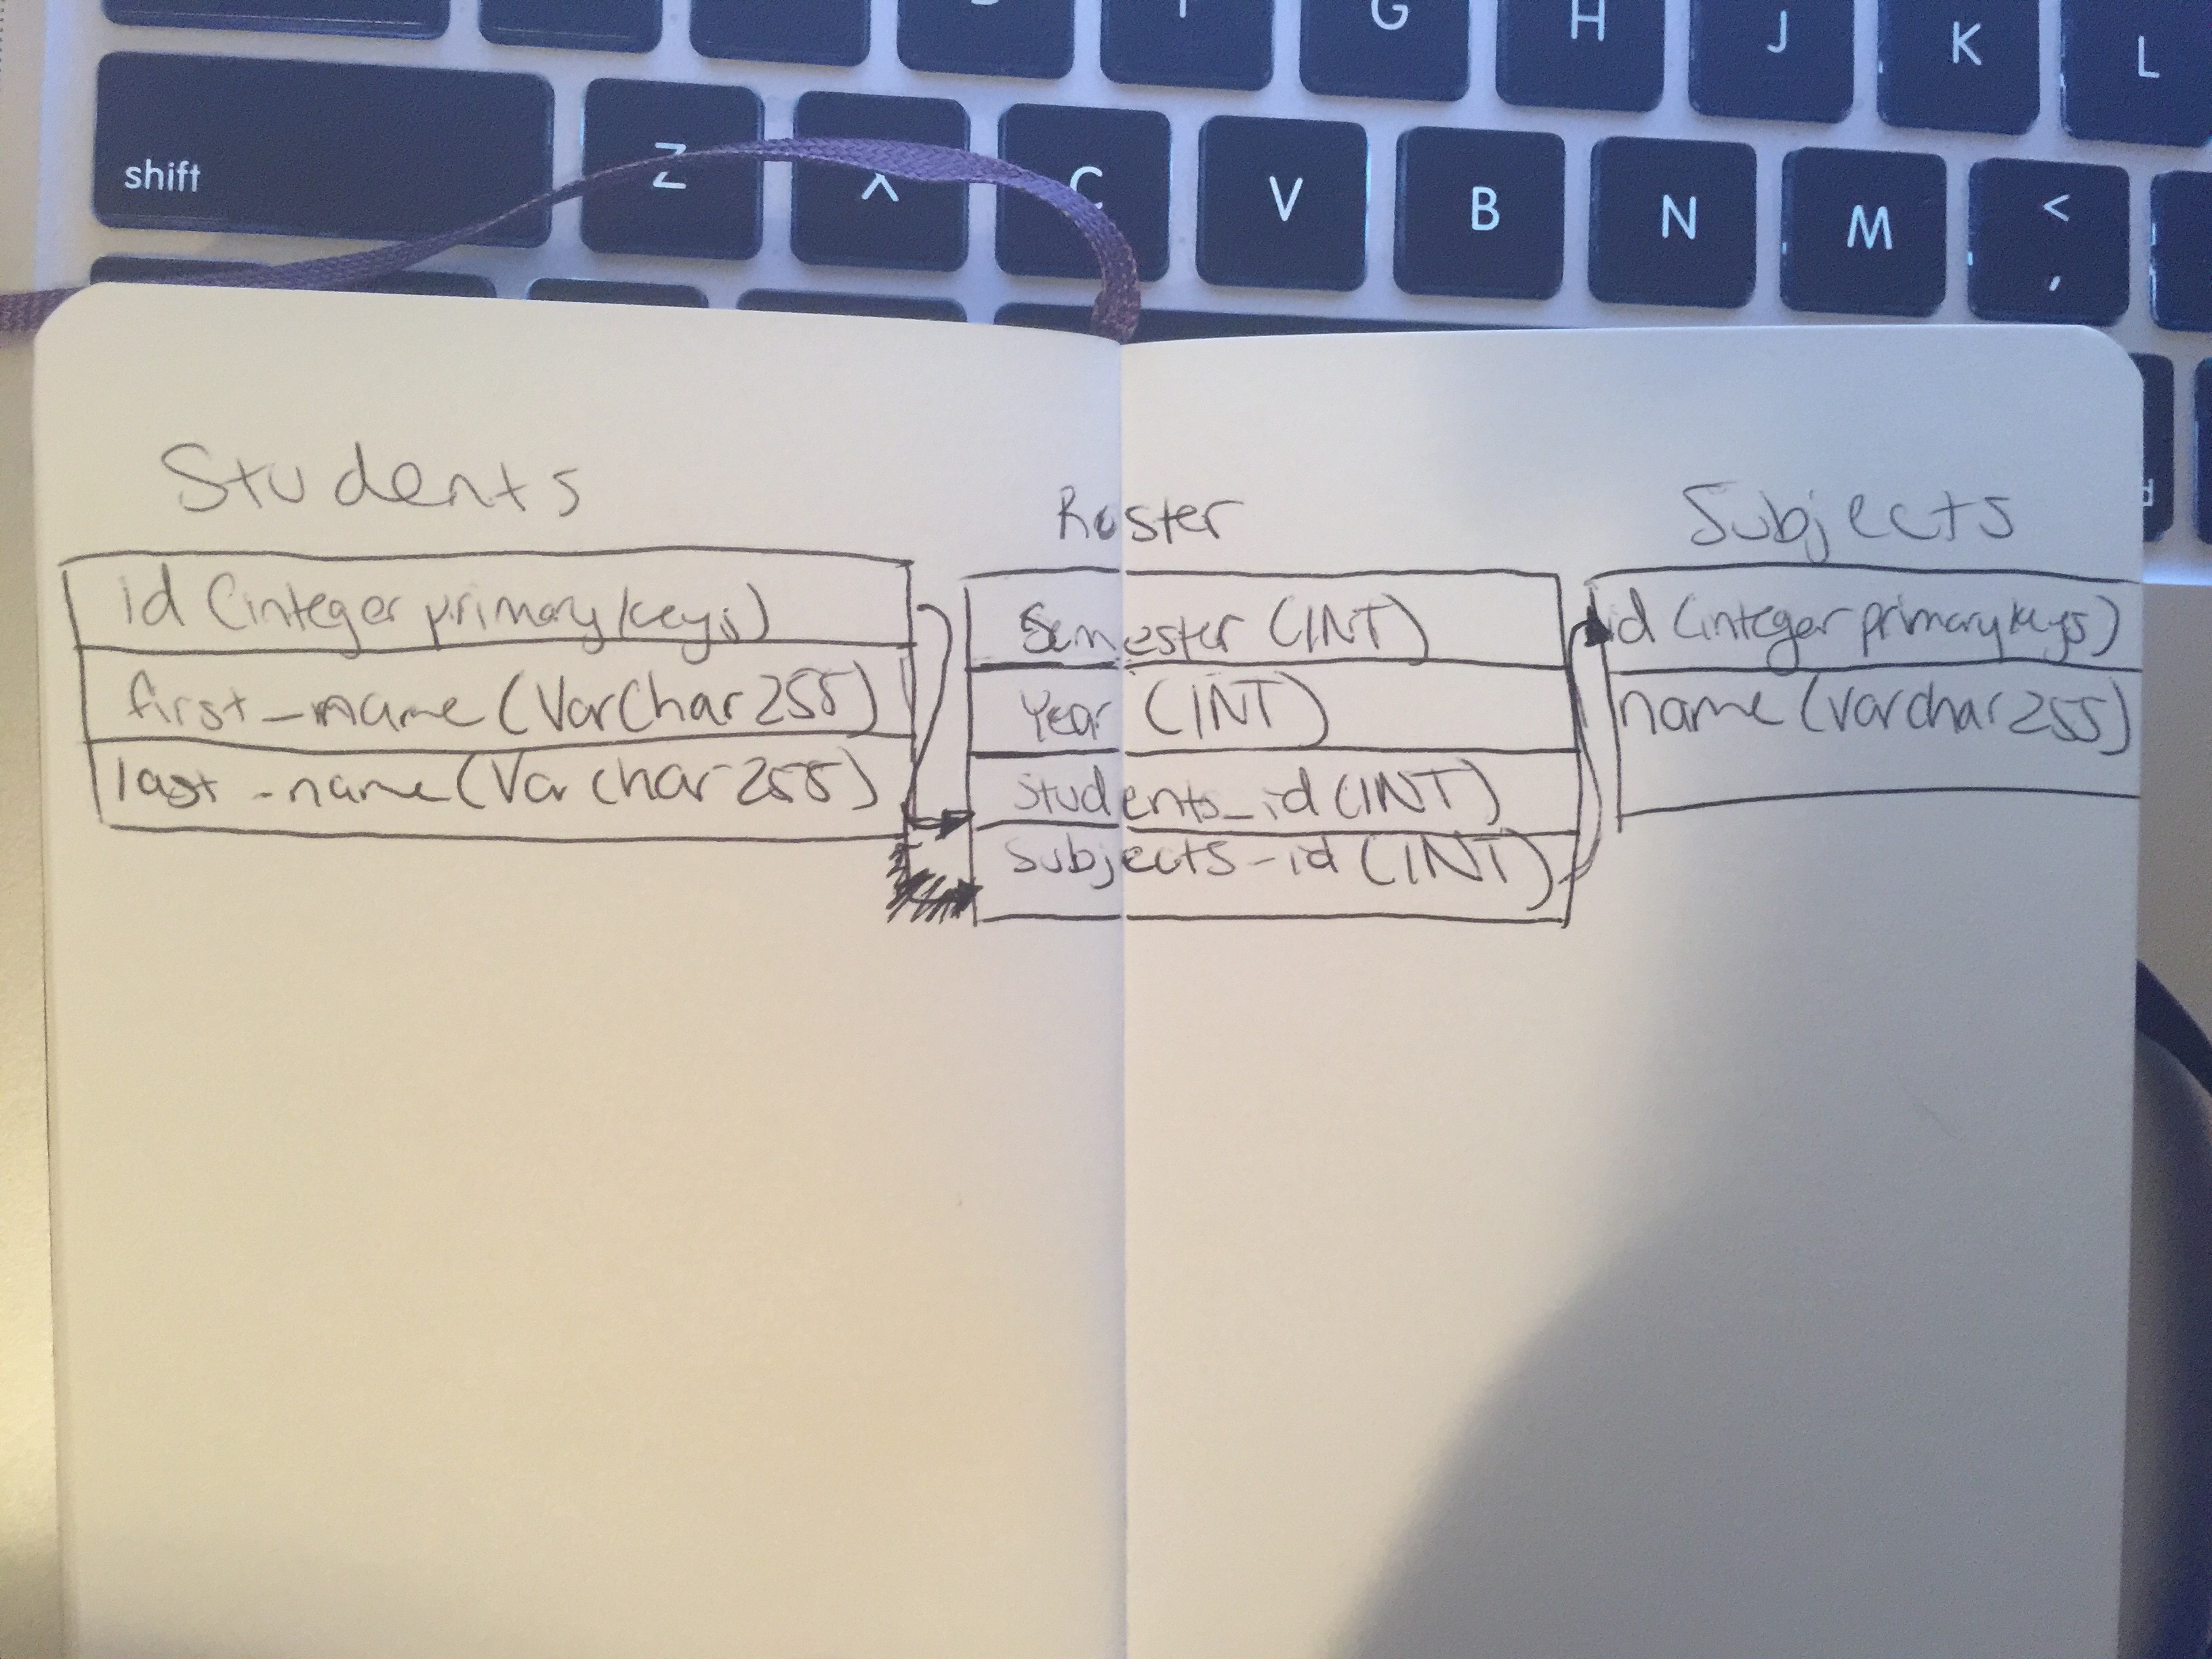 G H J K L
shift Z X C V B N M <
,
Students
id (integer primary keys)
first_name (VarChar 255)
last_name (VarChar 255)
Roster
Semester (INT)
Year (INT)
Students_id (INT)
Subjects_id (INT)
Subjects
id (integer primary keys)
name (varchar 255)